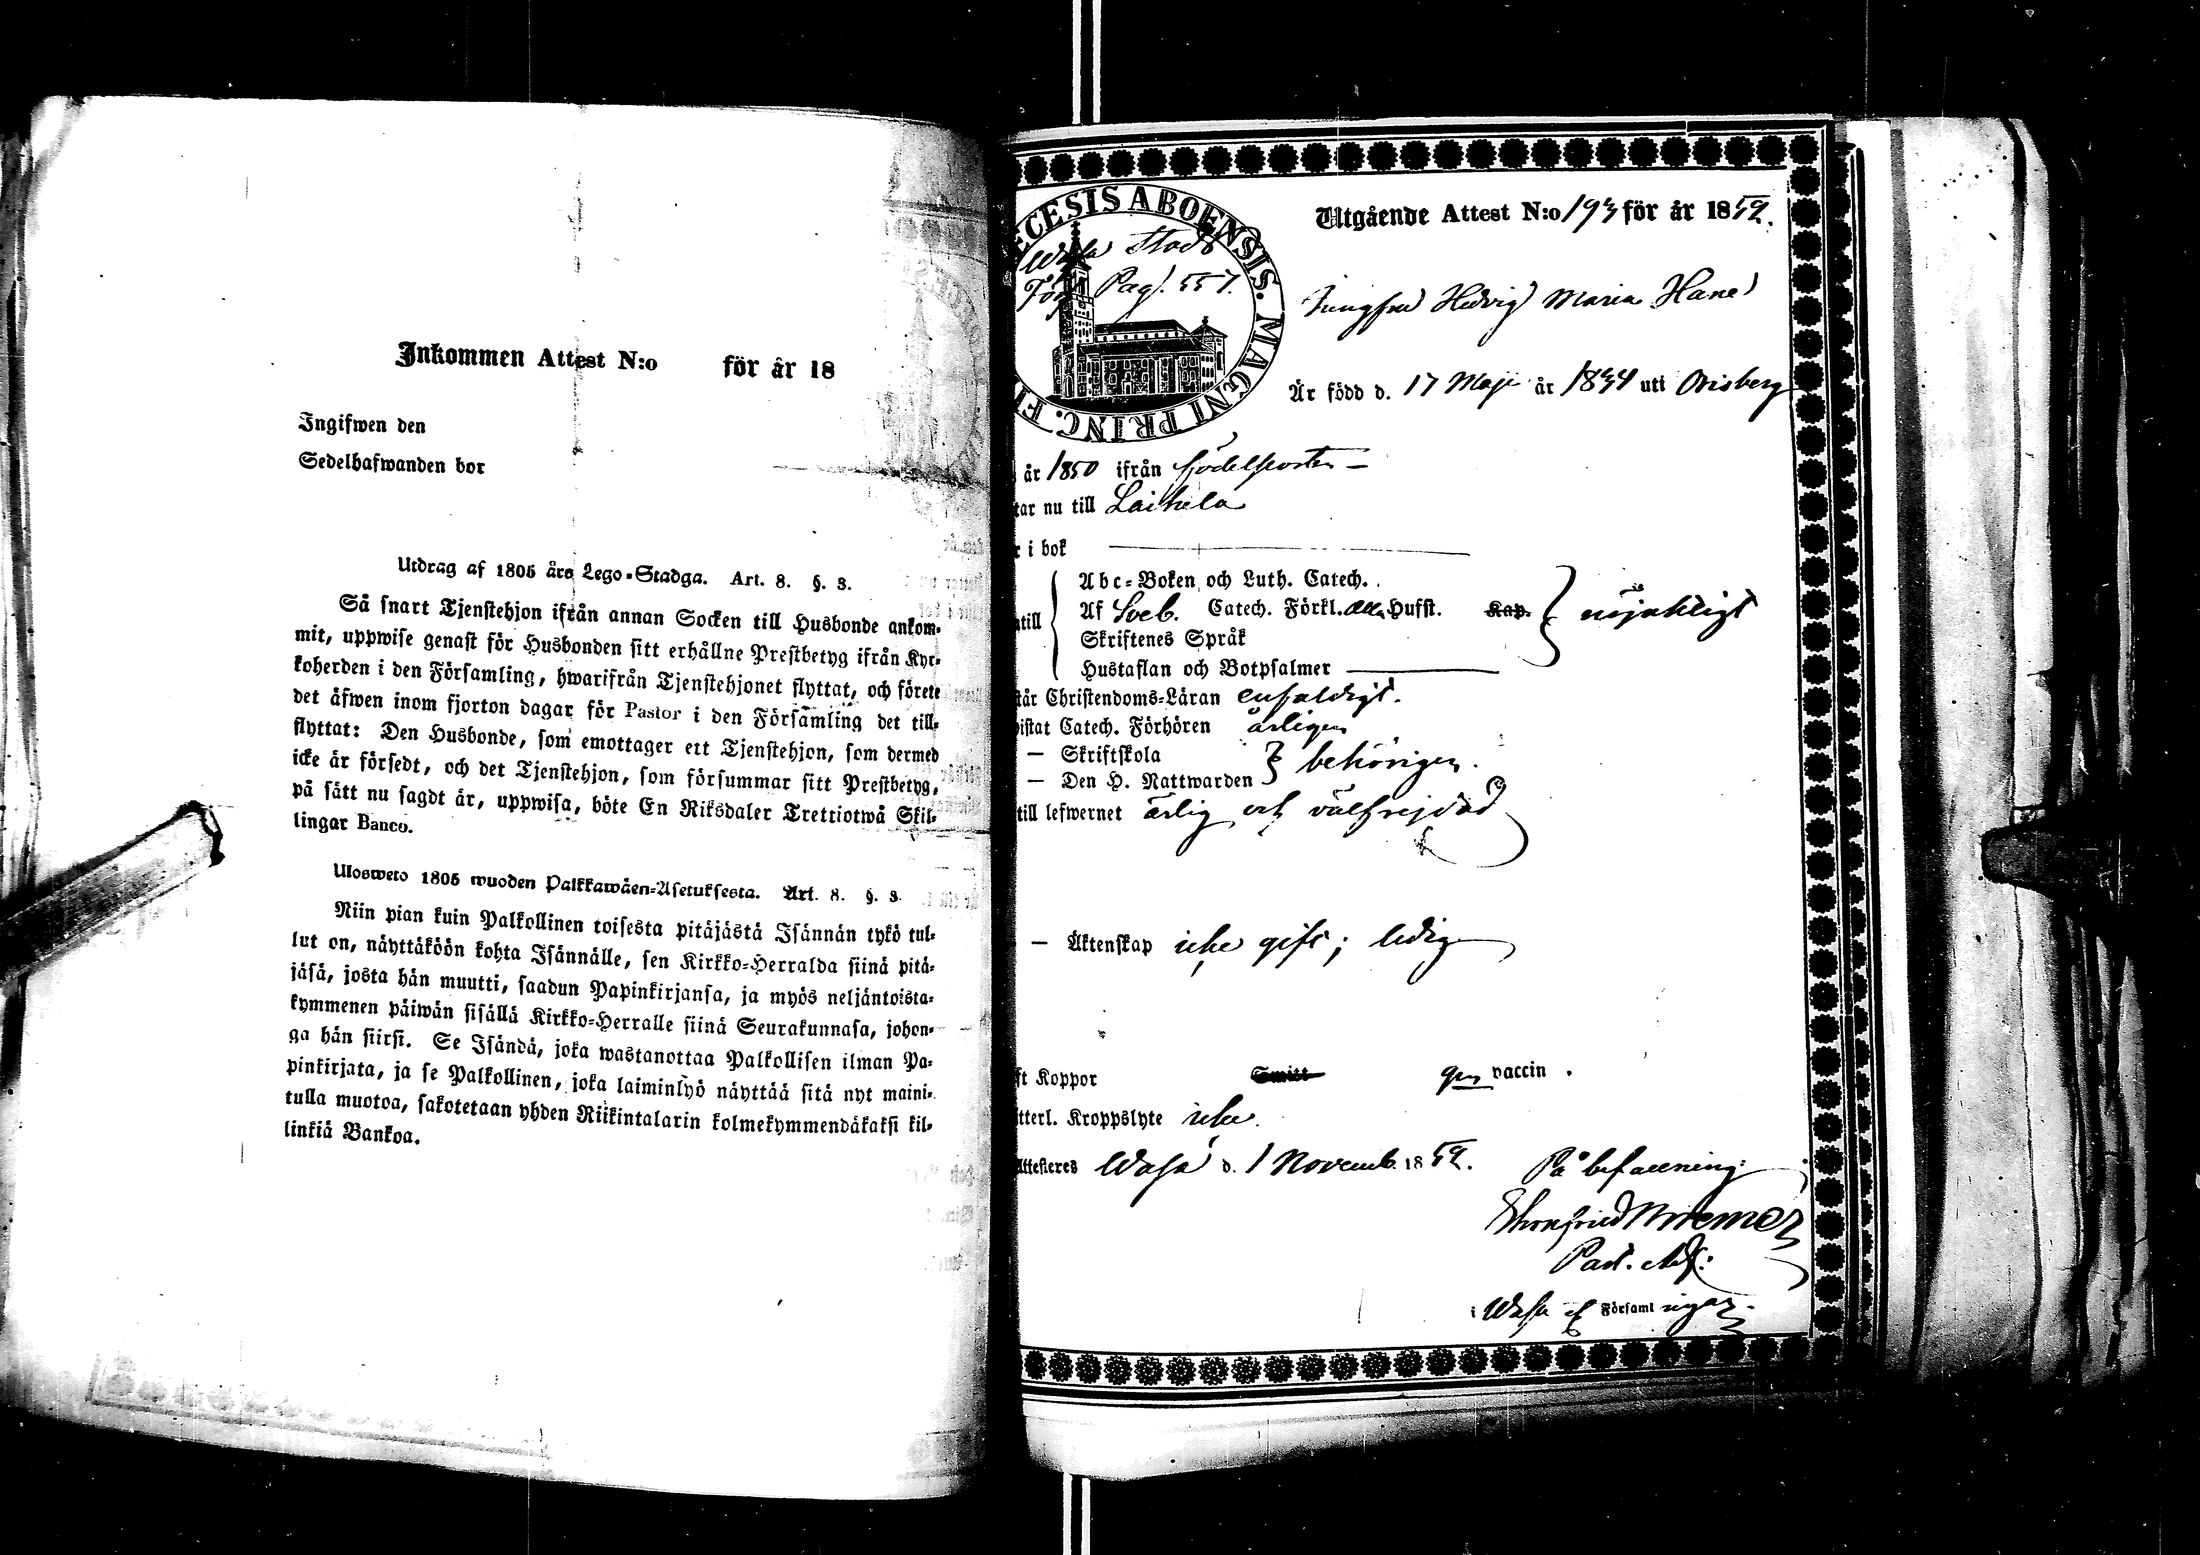 Inkommen Attest N:o för år 18
Ingifwen den
Sedelhafwanden bor
Utdrag af 1805 års Lego-Stadga. Art. 8. §. 3.
Så snart Tjenstehjon ifrån annan Socken till Husbonde ankom-
mit, uppwise genast för Husbonden sitt erhållne Prestbetyg ifrån Kyr-
koherden i den Församling, hwarifrån Tjenstehjonet flyttat, och förete
det äfwen inom fjorton dagar för Pastor i den Församling det till-
flyttat: Den Husbonde, som emottager ett Tjenstehjon, som dermed
icke är försedt, och det Tjenstehjon, som försummar sitt Prestbetyg,
på sätt nu sagdt är, uppwisa, böte En Riksdaler Trettiotwå Skil-
lingar Banco.
Ulosweto 1805 wuoden Palkkawäen-Asetuksesta. Art. 8. §. 3.
Niin pian kuin Palkollinen toisesta pitäjästä Isännän tykö tul-
lut on, näyttäköön kohta Isännälle, sen Kirkko-Herralda siinä pitä-
jäsä, josta hän muutti, saadun Papinkirjansa, ja myös neljäntoista-
kymmenen päiwän sisällä Kirkko-Herralle siinä Seurakunnasa, johon-
ga hän siirsi. Se Isändä, joka wastanottaa Palkollisen ilman Pa-
pinkirjata, ja se Palkollinen, joka laiminlyö näyttää sitä nyt maini-
tulla muotoa, sakotetaan yhden Riikintalarin kolmekymmendäkaksi kil-
linkiä Bankoa.
ECESIS ABOENSIS. MAGNI PRINC. FI
Wasa Stads
Pag. 557.
Utgående Attest N:o 193 för år 1859.
Jungfru Hedvig Maria Hane
Är född d. 17 Maji år 1834 uti Orisberg
år 1850 ifrån födelseorten —
tar nu till Laihela
r i bok
Abc-Boken och Luth. Catech.
ntill Af Sveb. Catech. Förkl. alla Hufst. Kap. nöjaktigt
Skriftenes Språk
Hustaflan och Botpsalmer
står Christendoms-Läran enfaldigt.
vistat Catech. Förhören årligen
— Skriftskola
— Den H. Nattwarden behörigen.
till lefwernet ärlig och välfrejdad
— Äktenskap icke gift; ledig
ft Koppor Smitt gen vaccin.
tterl. Kroppslyte icke.
Attesteres Wasa d. 1 Novemb. 1859.
På befallning:
Past. Adj:
i Wasa Församl ingar.